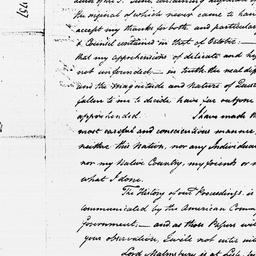 the original of which never came to han
accept my thanks for both, and particular
& Council contained in that of October.—
that my apprehensions of delicate and
not unfounded — in truth the real
and the magnitude and nature of
fallen to me to decide, have far
apprehended. I have made th
most careful and conscientious manner,
neither this Nation, nor any Individual
nor my Native Country, my friends or
what I done.
The History of our Proceedings is
communicated by the American Comm
Government,— and as those Papers will
your observation, I will not enter into
Lord Malmesbury is at Lisle,